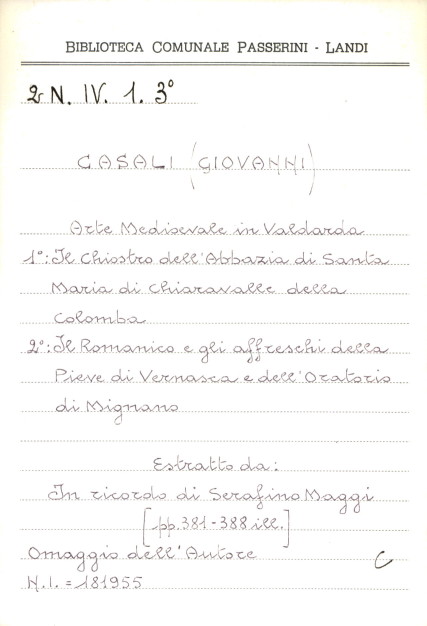 BIBLIOTECA COMUNALE PASSERINI - LANDI
2 N. IV. 1. 3°
CASALI (GIOVANNI)
Arte Medioevale in Valdarda
1°: Il Chiostro dell'Abbazia di Santa
Maria di Chiaravalle della
Colomba
2°: Il Romanico e gli affreschi della
Pieve di Vernasca e dell'Oratorio
di Mignano
Estratto da:
In ricordo di Serafino Maggi
[pp. 381-388 ill.]
Omaggio dell'Autore C
N.I. = 181955